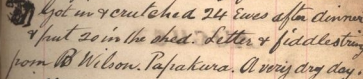 31 Got in & crutched 24 Ewes after dinner
& put 20 in the shed. Letter & fiddlestring
from B Wilson. Papakura. A very dry day.